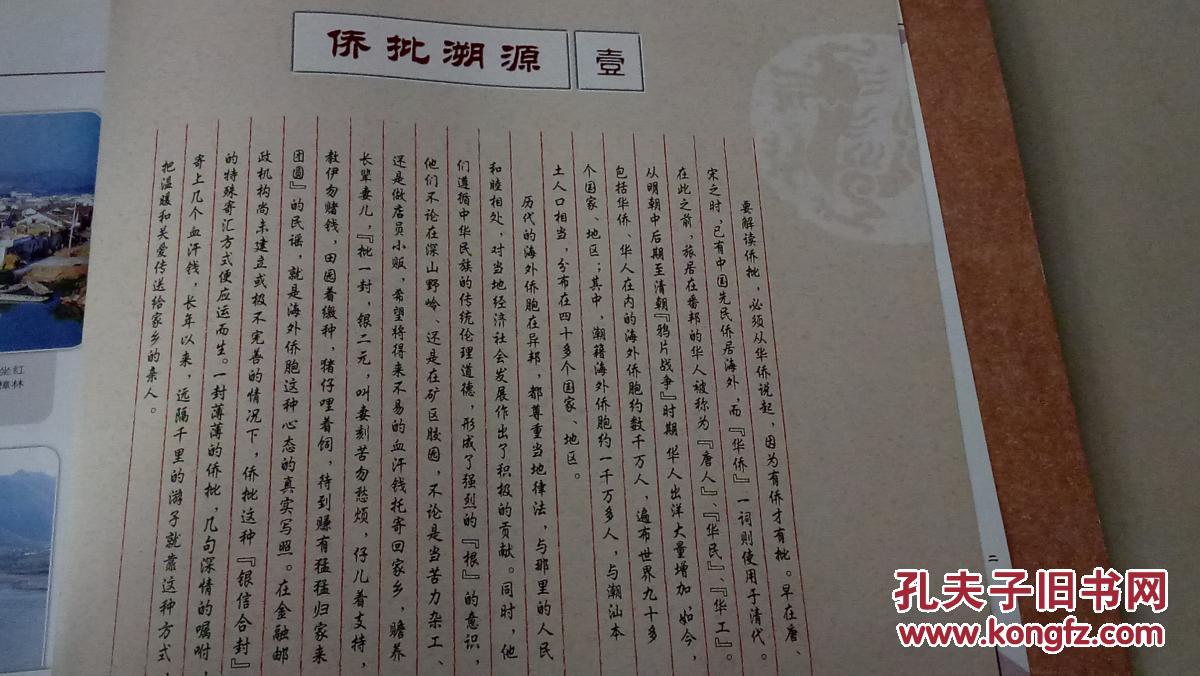 侨批溯源
壹
要解读侨批，必须从华侨说起，因为有侨才有批。早在唐、
宋之时，已有中国先民侨居海外，而『华侨』一词则使用于清代。
在此之前，旅居在番邦的华人被称为『唐人』、『华民』、『华工』。
从明朝中后期至清朝『鸦片战争』时期 华人出洋大量增加 如今，
包括华侨、华人在内的海外侨胞约数千万人，遍布世界九十多
个国家、地区；其中，潮籍海外侨胞约一千万多人，与潮汕本
土人口相当，分布在四十多个国家、地区。
历代的海外侨胞在异邦，都尊重当地律法，与那里的人民
和睦相处，对当地经济社会发展作出了积极的贡献。同时，他
们遵循中华民族的传统伦理道德，形成了强烈的『根』的意识，
他们不论在深山野岭、还是在矿区胶园，不论是当苦力杂工、
还是做店员小贩，希望将得来不易的血汗钱托寄回家乡，赡养
长辈妻儿，『批一封，银二元，叫妻刻苦勿愁烦，仔儿着支持，
教伊勿赌钱，田园着缴种，猪仔哩着饲，待到赚有猛猛归家来
团圆』的民谣，就是海外侨胞这种心态的真实写照。在金融邮
政机构尚未建立或极不完善的情况下，侨批这种『银信合封』
的特殊寄汇方式便应运而生。一封薄薄的侨批，几句深情的嘱咐，
寄上几个血汗钱，长年以来，远隔千里的游子就靠这种方式，
把温暖和关爱传送给家乡的亲人。
二
坐红
樟林
孔夫子旧书网
www.kongfz.com